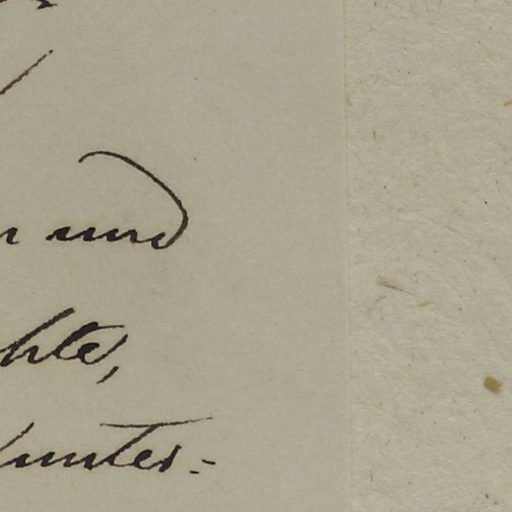 und
hte,
unter=